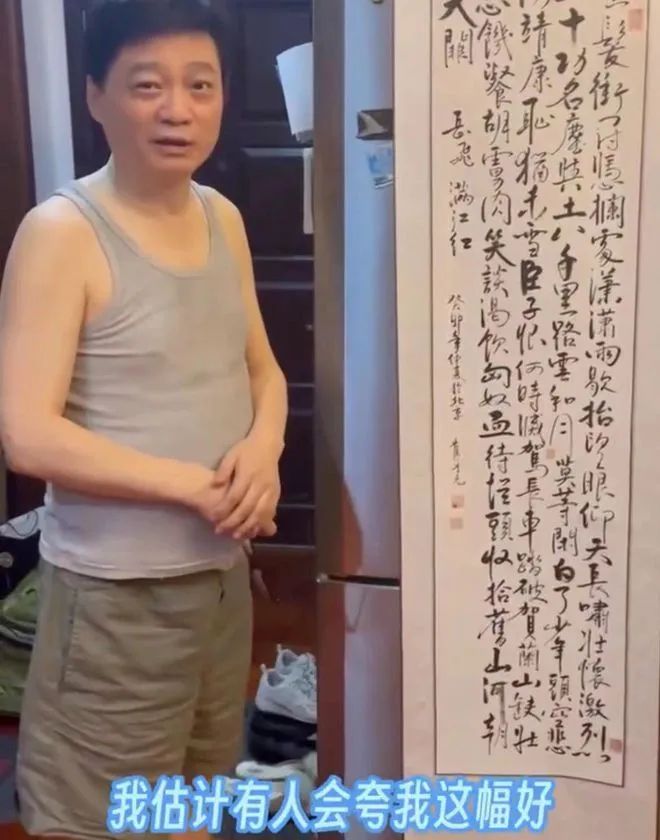 髮衝冠憑欄處瀟瀟雨歇抬望眼仰天長嘯壯懷激烈
十功名塵與土八千里路雲和月莫等閒白了少年頭空悲
靖康恥猶未雪臣子恨何時滅駕長車踏破賀蘭山缺壯
志饑餐胡虜肉笑談渴飲匈奴血待從頭收拾舊山河朝
天闕
岳飛 滿江紅
癸卯年仲夏於北京
我估计有人会夸我这幅好